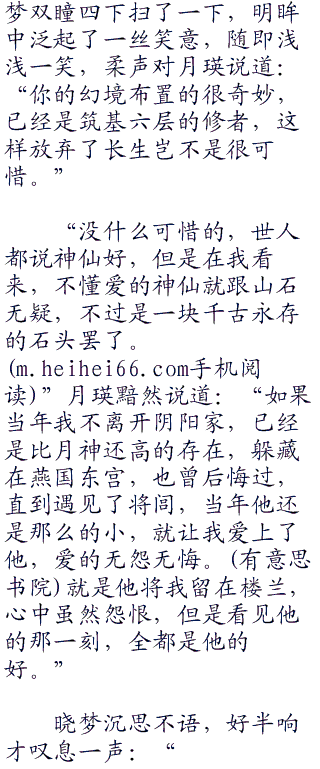 梦双瞳四下扫了一下，明眸
中泛起了一丝笑意，随即浅
浅一笑，柔声对月瑛说道：
“你的幻境布置的很奇妙，
已经是筑基六层的修者，这
样放弃了长生岂不是很可
惜。”
“没什么可惜的，世人
都说神仙好，但是在我看
来，不懂爱的神仙就跟山石
无疑，不过是一块千古永存
的石头罢了。
(m.heihei66.com手机阅
读)”月瑛黯然说道：“如果
当年我不离开阴阳家，已经
是比月神还高的存在，躲藏
在燕国东宫，也曾后悔过，
直到遇见了将闾，当年他还
是那么的小，就让我爱上了
他，爱的无怨无悔。(有意思
书院)就是他将我留在楼兰，
心中虽然怨恨，但是看见他
的那一刻，全都是他的
好。”
晓梦沉思不语，好半响
才叹息一声：“